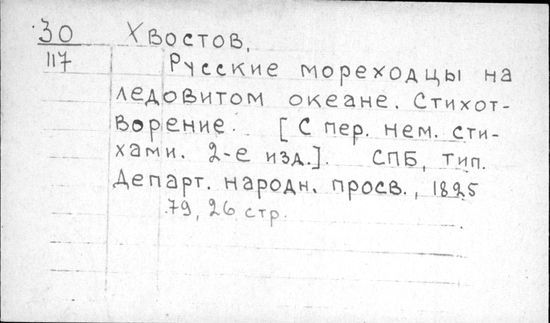 30 Хвостов,
117 Русские мореходцы на
ледовитом океане. Стихот-
ворение. [С пер. нем. сти-
хами. 2-е изд.]. СПБ, тип.
Департ. народн. просв., 1825
79, 26 стр.